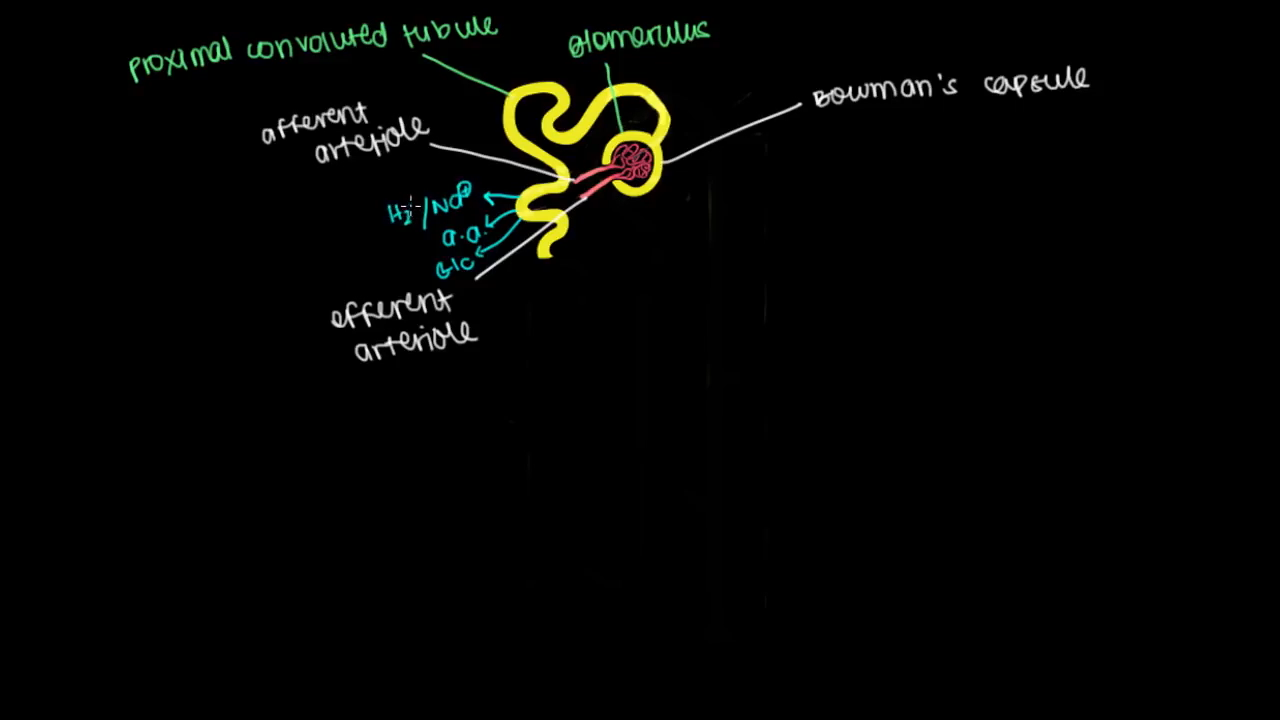 proximal convoluted tubule
glomerulus
Bowman's capsule
afferent
arteriole
H2/Na+
a.a.
Glc
efferent
arteriole